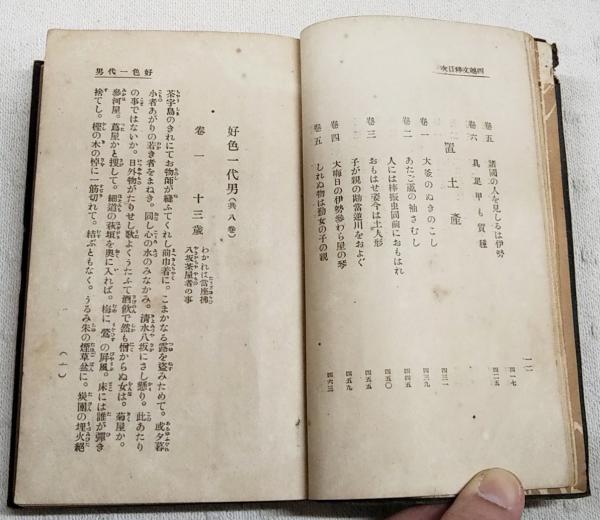 西鶴文粹目次
卷五
諸國の人を見しるは伊勢
四一七
卷六
具足甲も質種
四二五
置土産
卷一
大釜のぬきのこし
四三一
卷二
あたご颪の袖さむし
四三九
人には棒振虫同前におもはれ
四四五
卷三
おもはせ姿今は土人形
四五〇
子が親の勘當逆川をおよぐ
四五五
卷四
大晦日の伊勢參わら屋の琴
四五九
卷五
しれぬ物は勤女の子の親
四六三
一二
好色一代男
好色一代男(共八卷)
卷一 十三歲
わかれは當座拂
八坂茶屋者の事
茶宇島のきれにてお物師が縫ふてくれし前巾着に。こまかなる露を盜みためて。或夕暮
小者あがりの若き者をまねき。同し心の水のみなかみ。清水八坂にさし懸り。此あたり
の事ではないか。日外物がたりせし歌よくうたふて酒飲で然も憎からぬ女は。菊屋か。
參河屋。蔦屋かと搜して。細道の萩垣を奧に入れば。梅に鶯の屏風。床には誰が彈き
捨てし。樫の木の棹に一筋切れて。結ぶともなく。うるみ朱の煙草盆に。炭團の埋火絕
(一)